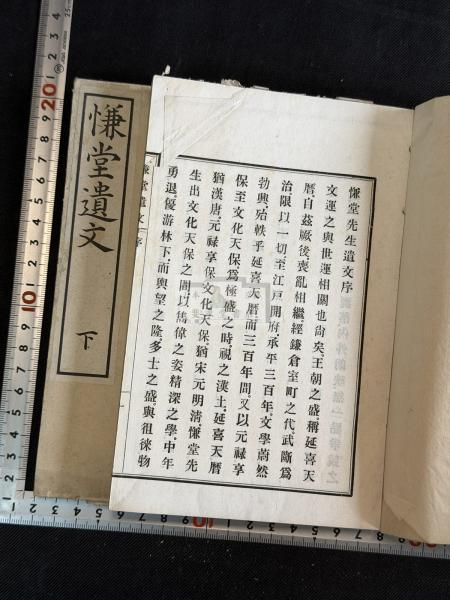 慊堂遺文
下
慊堂先生遺文序
文運之與世運相關也尙矣、王朝之盛、稱延喜天
曆、自茲厥後、喪亂相繼、經鎌倉室町之代、武斷爲
治、限以一切、至江戶開府、承平三百年、文學蔚然
勃興、殆軼乎延喜天曆、而三百年間、又以元祿享
保至文化天保爲極盛之時、視之漢土、延喜天曆
猶漢唐、元祿享保文化天保猶宋元明清、慊堂先
生出文化天保之間、以雋偉之姿、精深之學、中年
勇退、優游林下、而輿望之隆、多士之盛、與徂徠物
慊堂遺文 序